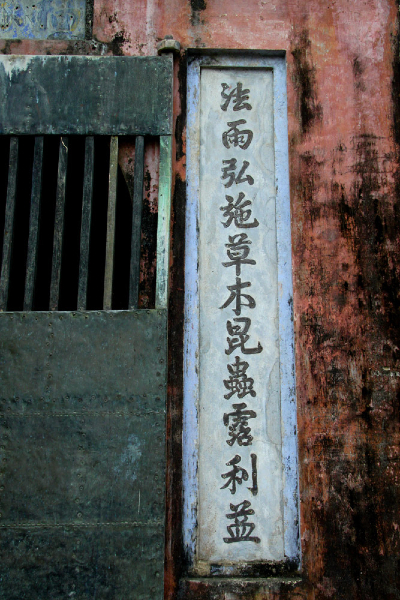 法雨弘施草木昆蟲露利益